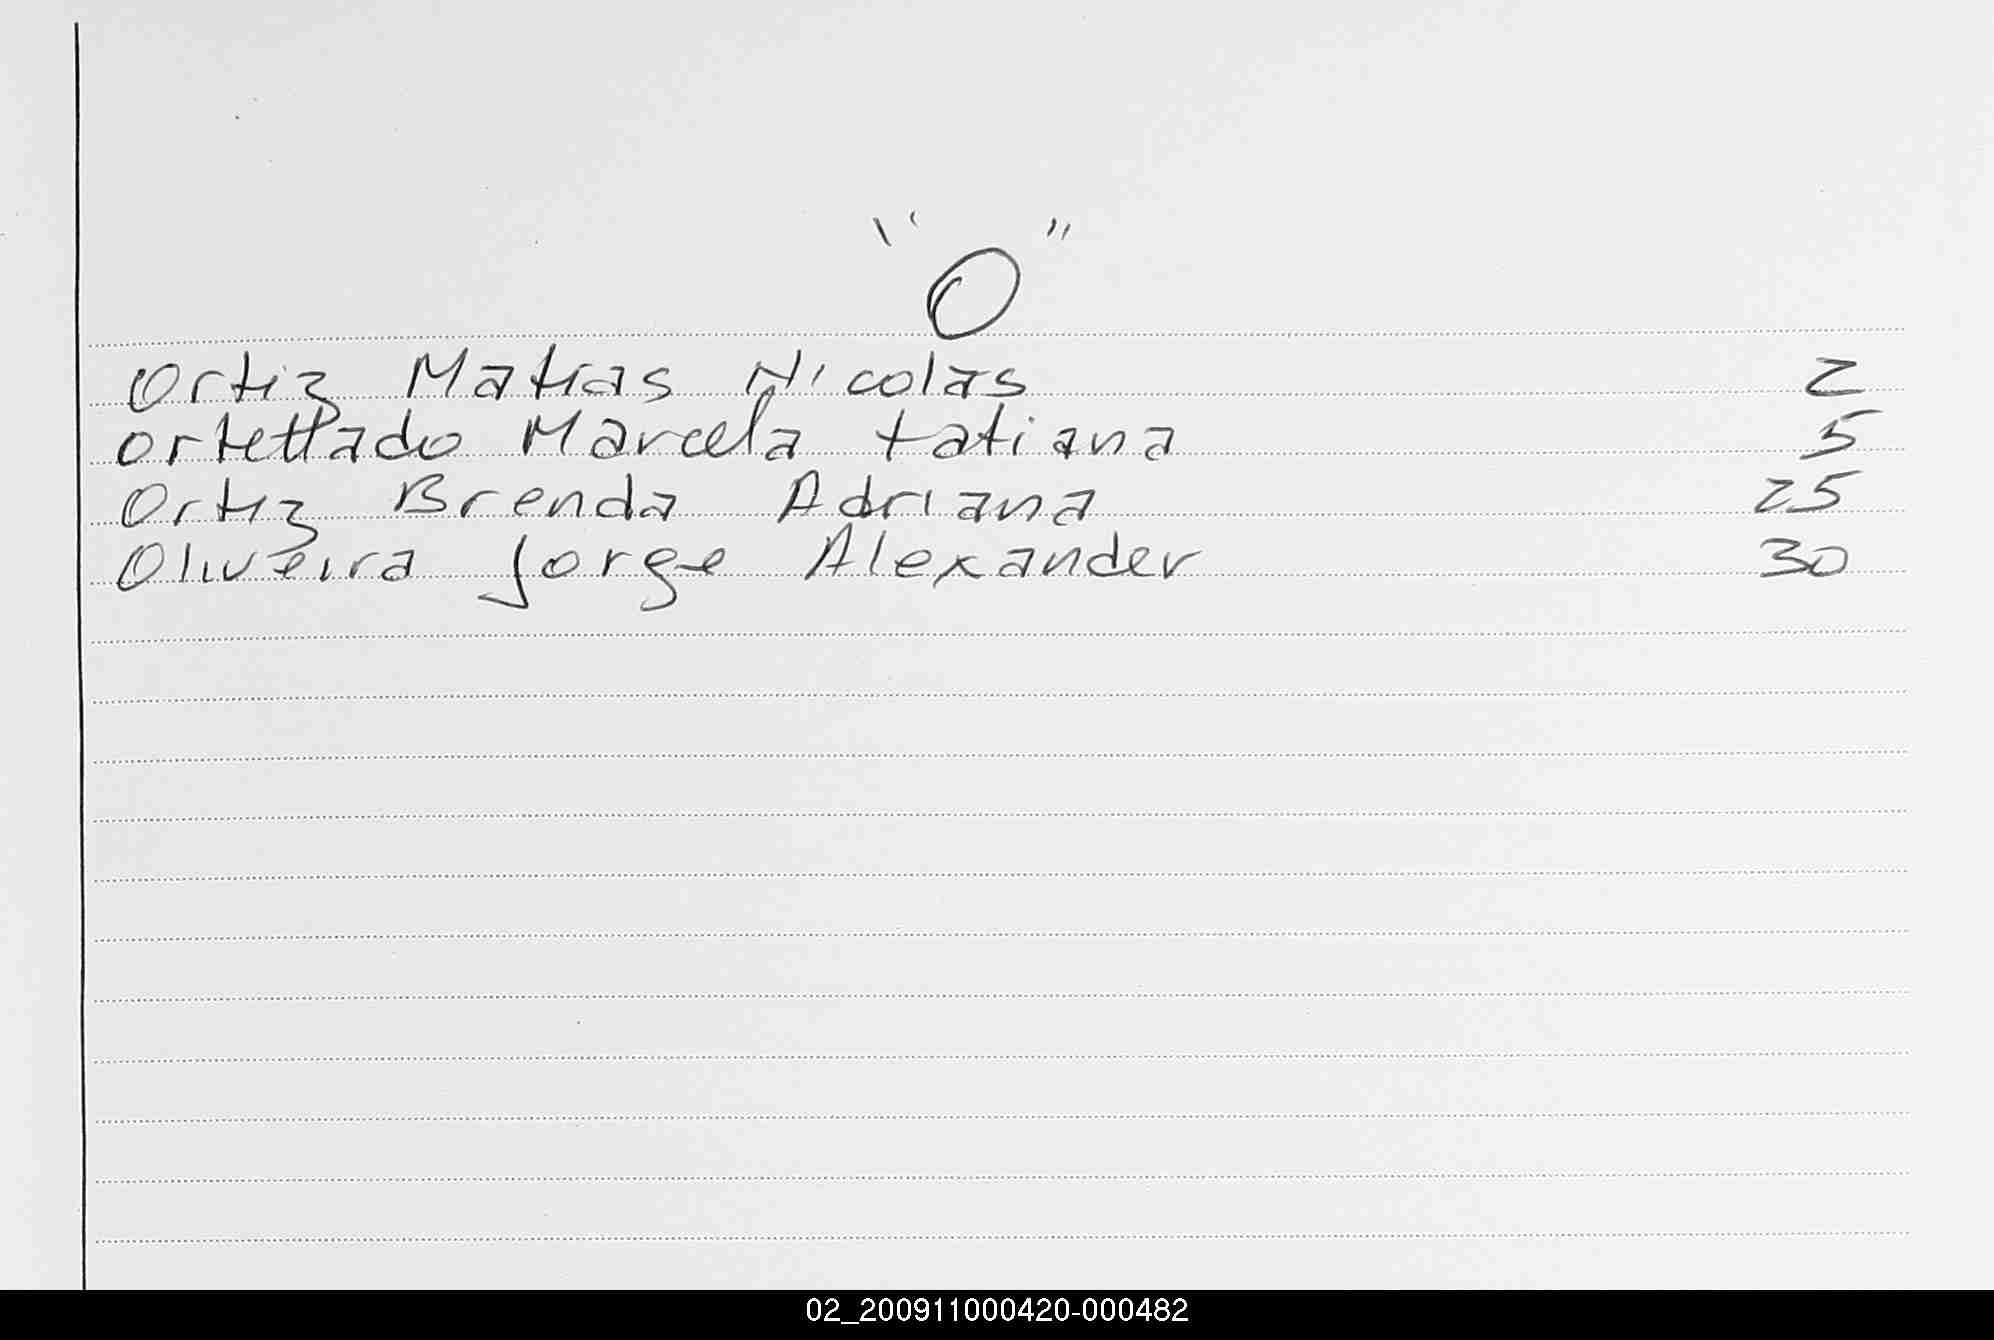 "O"
Ortiz Matias Nicolas 2
Ortellado Marcela tatiana 5
Ortiz Brenda Adriana 25
Oliveira Jorge Alexander 30
02_200911000420-000482